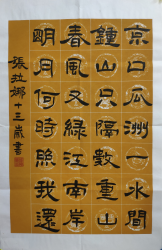 京口瓜洲一水間
鍾山只隔數重山
春風又綠江南岸
明月何時照我還
張拉娜十三歲書